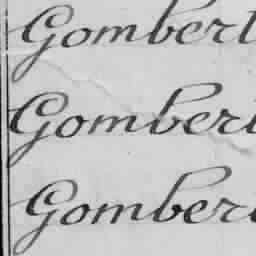 Gombert
Gombert
Gombert